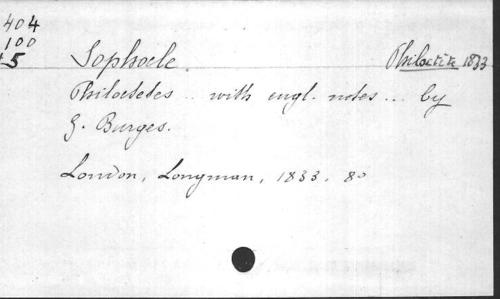 404
100
+5
Sophocle. Philoctète 1833
Philoctetes .. with engl. notes ... by
G. Burges.
London, Longman, 1833. 8o